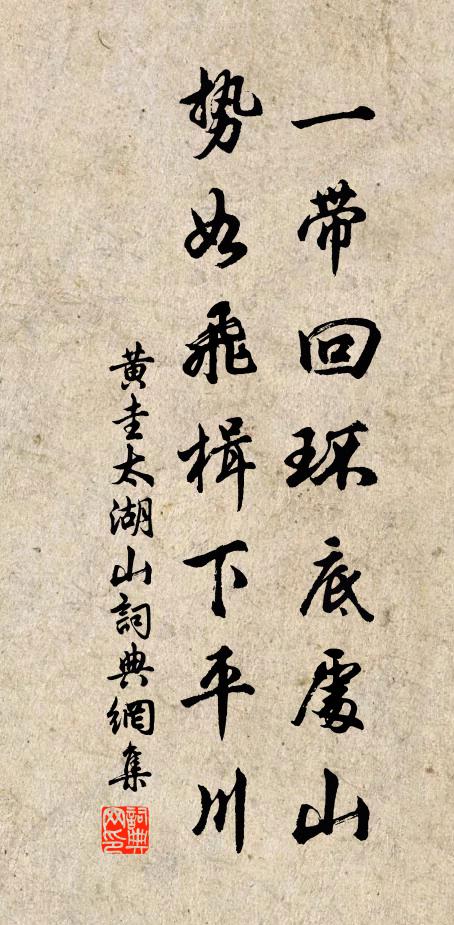 一带回环底處山
势如飛楫下平川
黄圭太湖山詞典網集
詞典网印